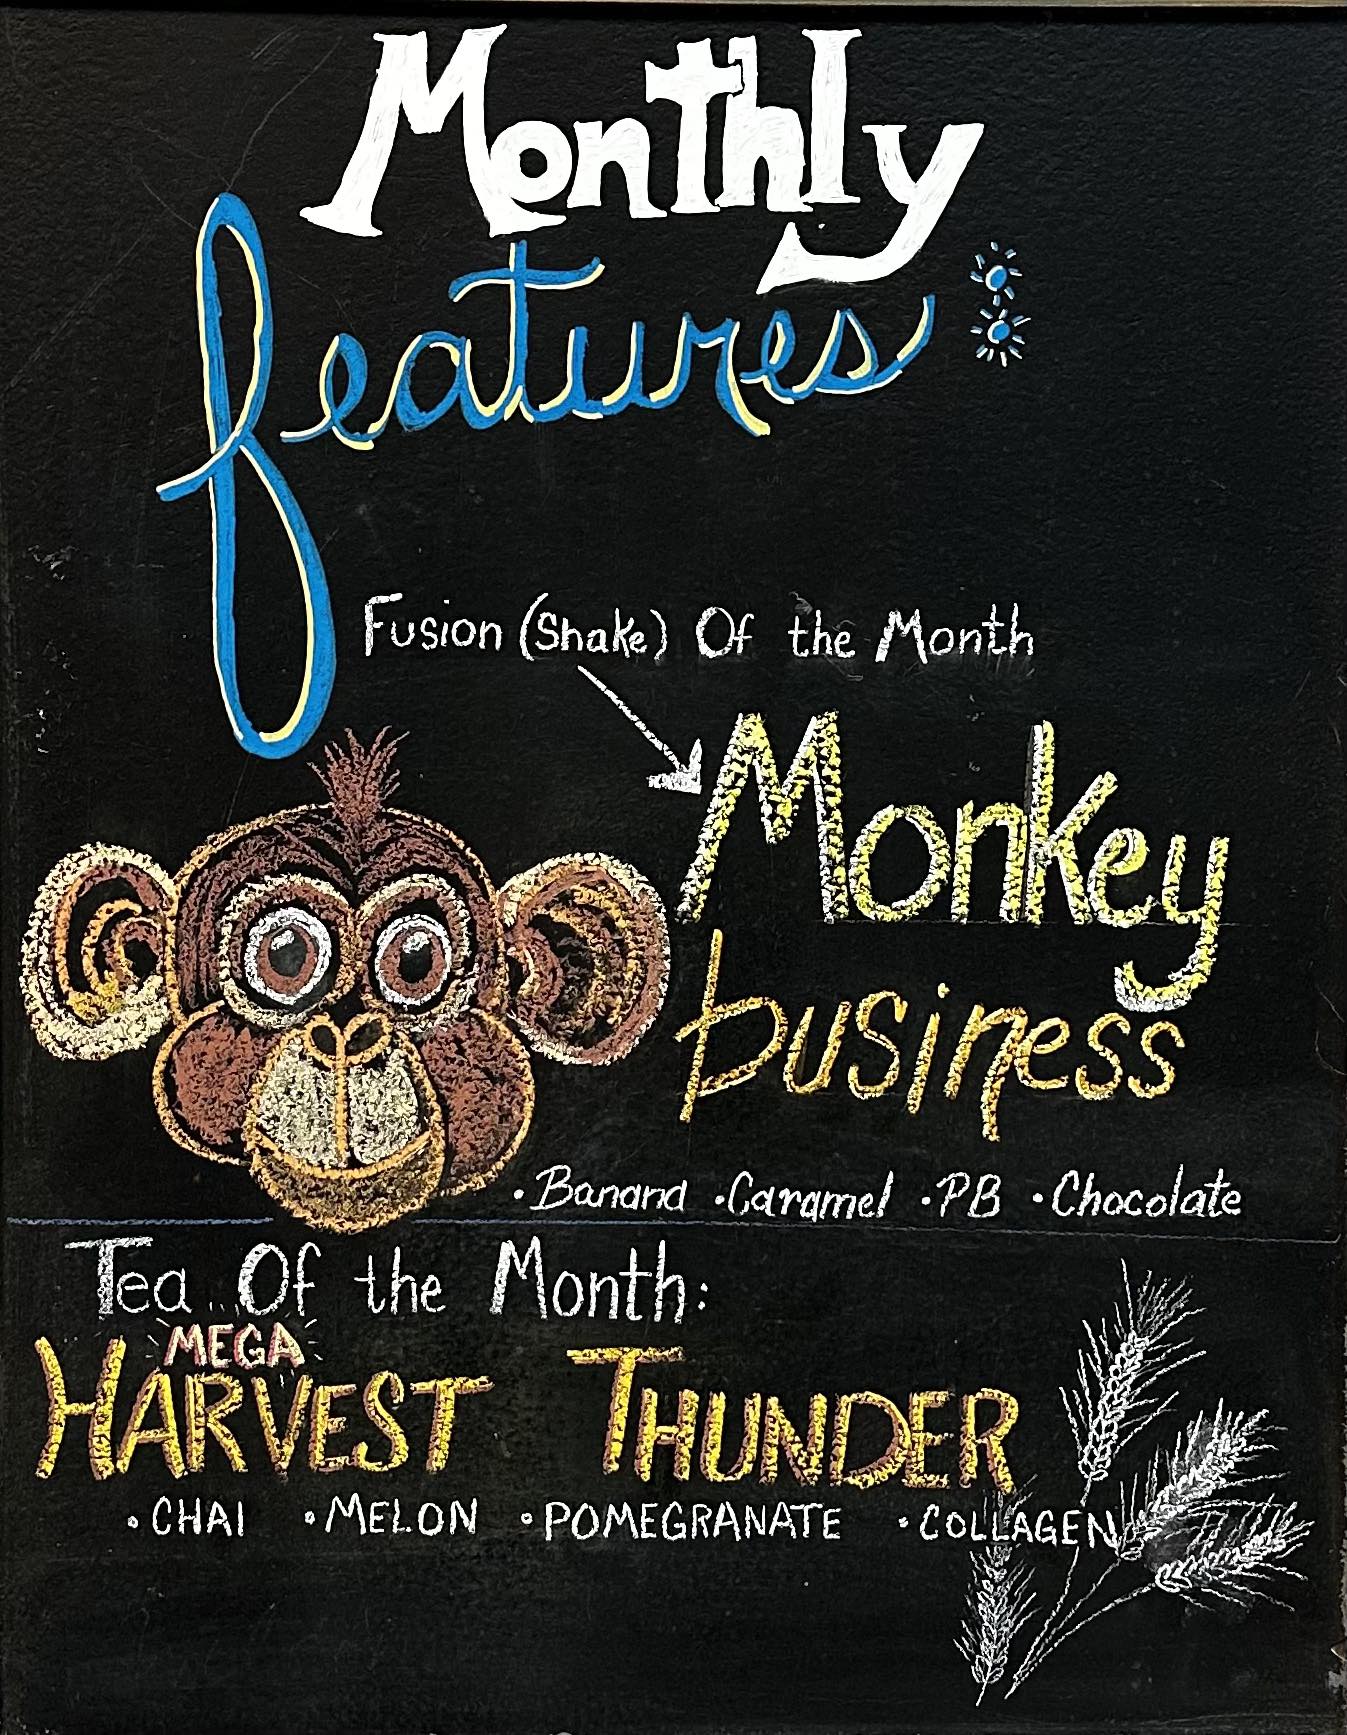 Monthly
features:
Fusion (Shake) Of the Month
Monkey
business
• Banana • Caramel • PB • Chocolate
Tea Of the Month:
MEGA
HARVEST THUNDER
• CHAI • MELON • POMEGRANATE • COLLAGEN